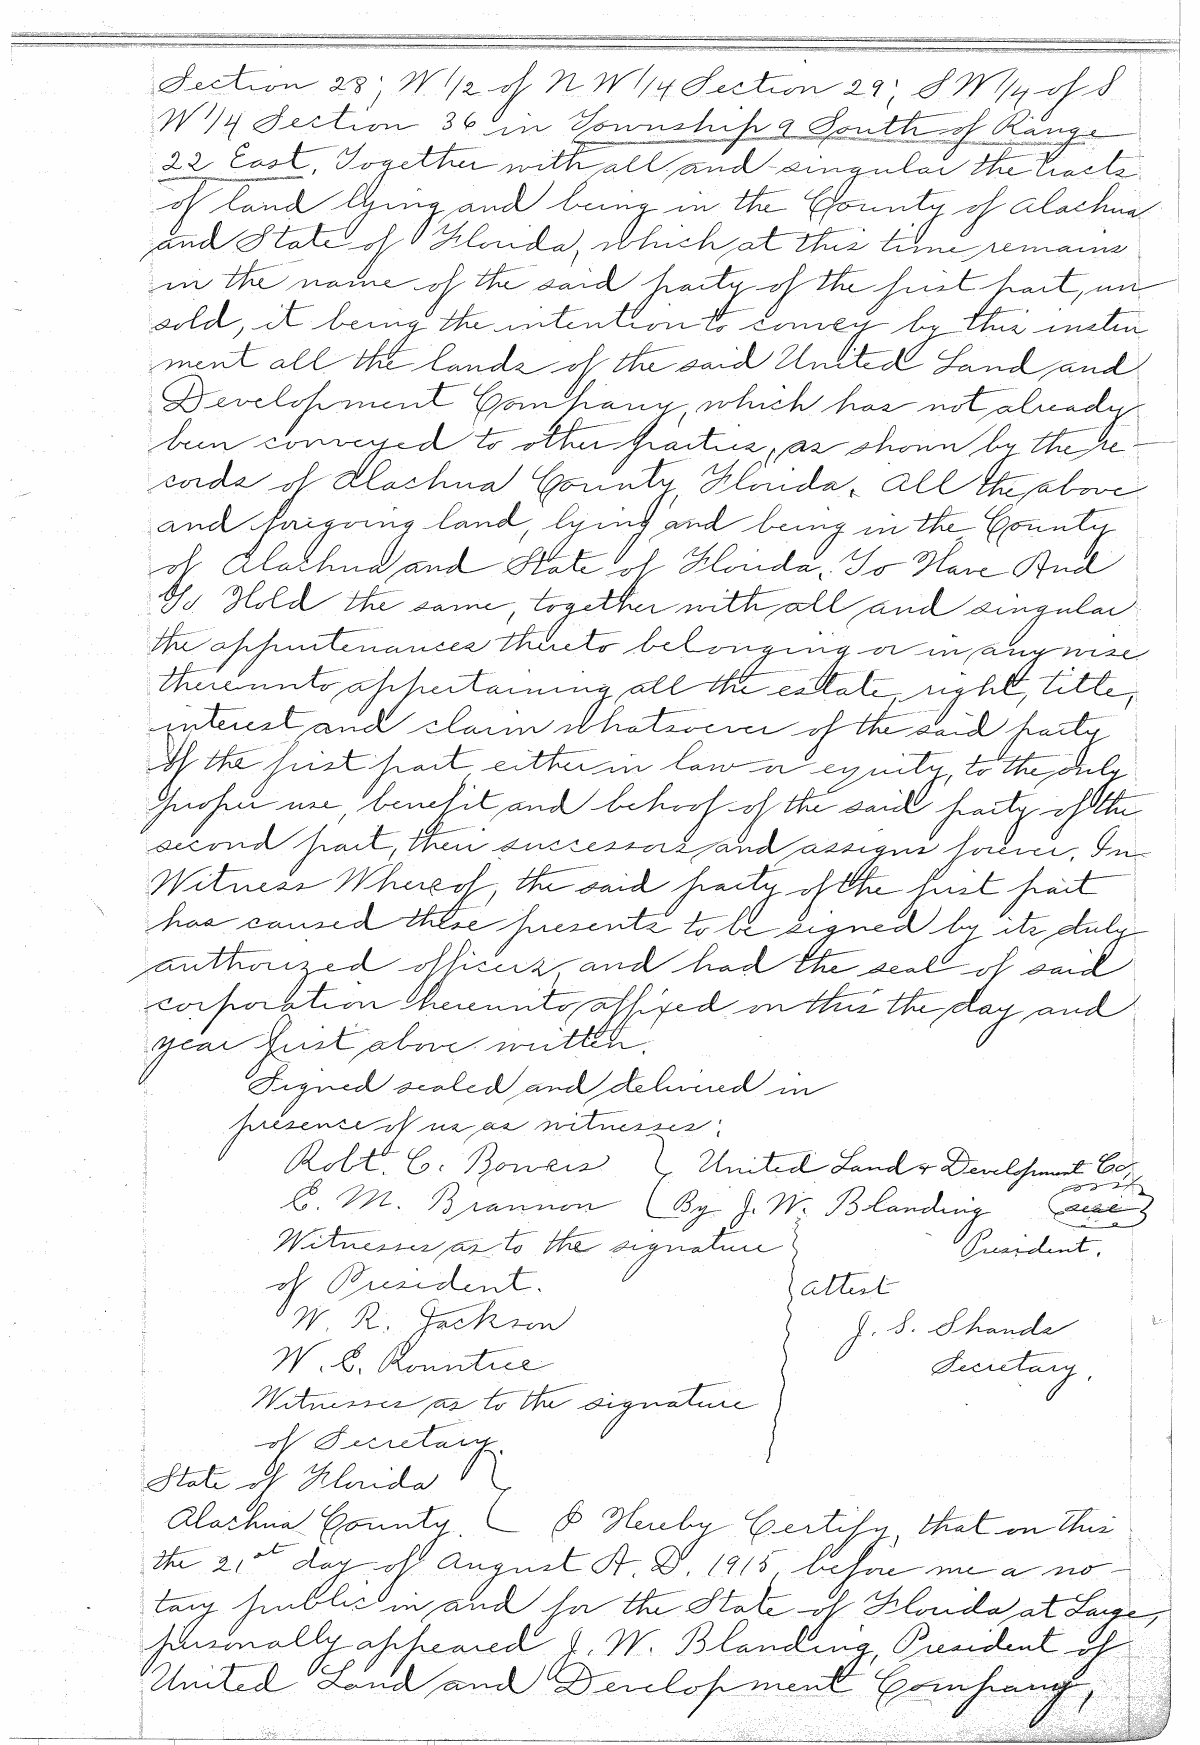 Section 28; W 1/2 of N W 1/4 Section 29; S W 1/4 of S
W 1/4 Section 36 in Township 9 South of Range
22 East, Together with all and singular the tracts
of land lying and being in the County of Alachua
and State of Florida, which at this time remains
in the name of the said party of the first part, un
sold, it being the intention to convey by this instru
ment all the lands of the said United Land and
Development Company, which has not already
been conveyed to other parties, as shown by the re-
cords of Alachua County, Florida. All the above
and foregoing land, lying and being in the County
of Alachua and State of Florida. To Have And
To Hold the same, together with all and singular
the appurtenances thereto belonging or in anywise
thereunto appertaining, all the estate, right, title,
interest and claim whatsoever of the said party
of the first part either in law or equity, to the only
proper use, benefit and behoof of the said party of the
second part, their successors and assigns forever. In
Witness Whereof, the said party of the first part
has caused these presents to be signed by its duly
authorized officers, and had the seal of said
corporation hereunto affixed on this the day and
year first above written.
Signed sealed and delivered in
presence of us as witnesses:
Robt. C. Bowers } United Land & Development Co,
E. M. Brannon ( By J. W. Blanding (seal)
Witnesses as to the signature President.
of President. Attest
W. R. Jackson J. S. Shands
W. E. Rountree Secretary.
Witnesses as to the signature
of Secretary.
State of Florida
Alachua County. I Hereby Certify, that on this
the 21st day of August A. D. 1915, before me a no-
tary public in and for the State of Florida at Large,
personally appeared J. W. Blanding, President of
United Land and Development Company,